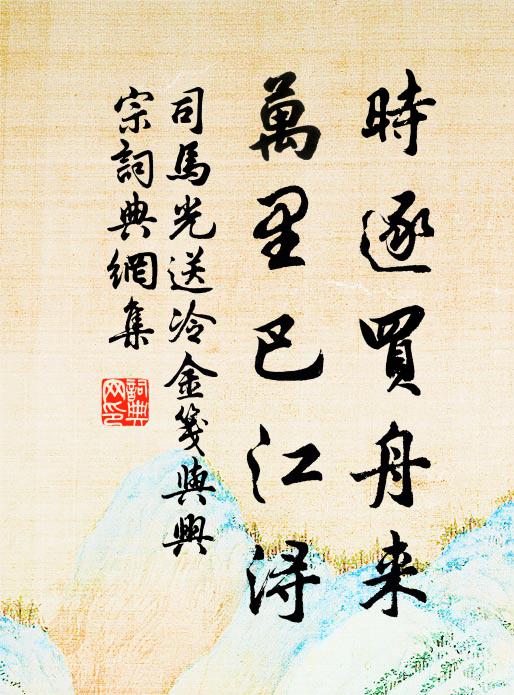 時逐買舟来
萬里巴江潯
司馬光送冷金箋與興
宗詞典網集
詞典
网印